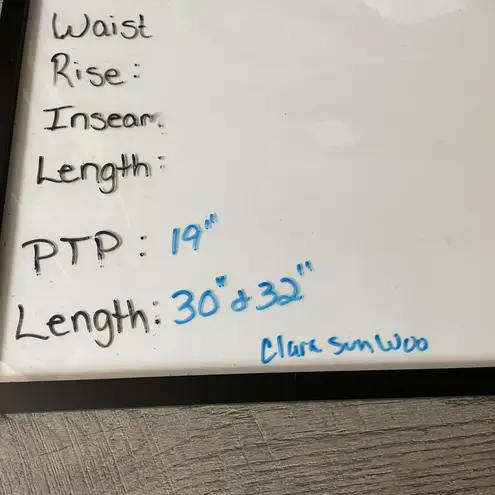 Waist
Rise:
Inseam.
Length:
PTP: 19"
Length: 30" & 32"
Clara Sun Woo